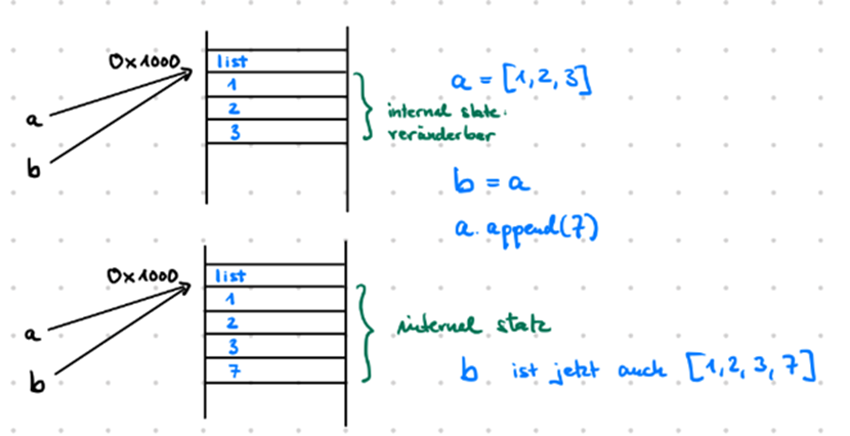 0x1000
list
1
2
3
a
b
a = [1,2,3]
internal state:
veränderbar
b = a
a.append(7)
0x1000
list
1
2
3
7
a
b
internal state
b ist jetzt auch [1,2,3,7]